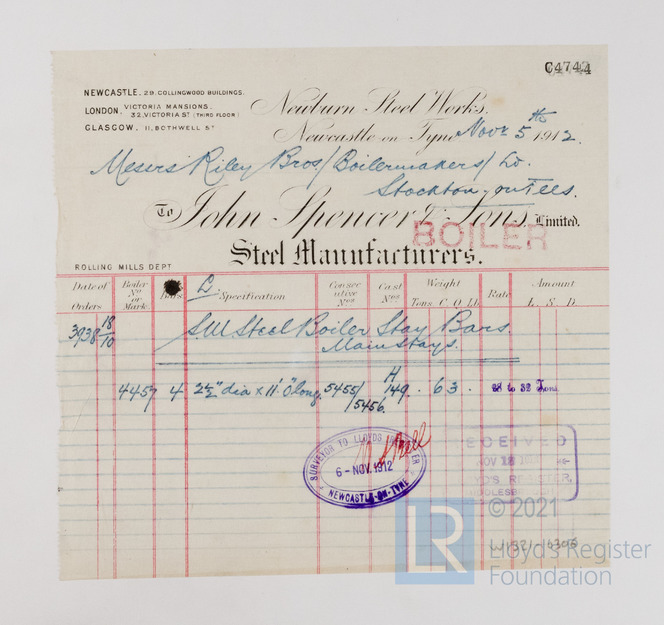 C4744
NEWCASTLE. 29. COLLINGWOOD BUILDINGS.
LONDON. VICTORIA MANSIONS.
32, VICTORIA ST (THIRD FLOOR)
GLASGOW. 11, BOTHWELL ST
Newburn Steel Works.
Newcastle on Tyne Novr 5th 1912.
Messrs Riley Bros/Boilermakers/ Ld.
Stockton-on-Tees.
To John Spencer & Sons, Limited.
BOILER
Steel Manufacturers.
ROLLING MILLS DEPT
Date of Orders Boiler No or Mark. Bars. L. Specification Consecutive Nos Cast Nos Weight Tons. C. Q. LL. Rate Amount L. S. D.
3938 18/10 S.M. Steel Boiler Stay Bars.
Main Stays.
4457 4 2½" dia x 11' 0" long. 5455/5456 H 149. 6 3 28 to 32 Tons.
SURVEYOR TO LLOYDS REGISTER
6-NOV.1912
NEWCASTLE-ON-TYNE
RECEIVED
NOV 12
LLOYD'S REGISTER,
© 2021
Lloyd's Register
Foundation
LR